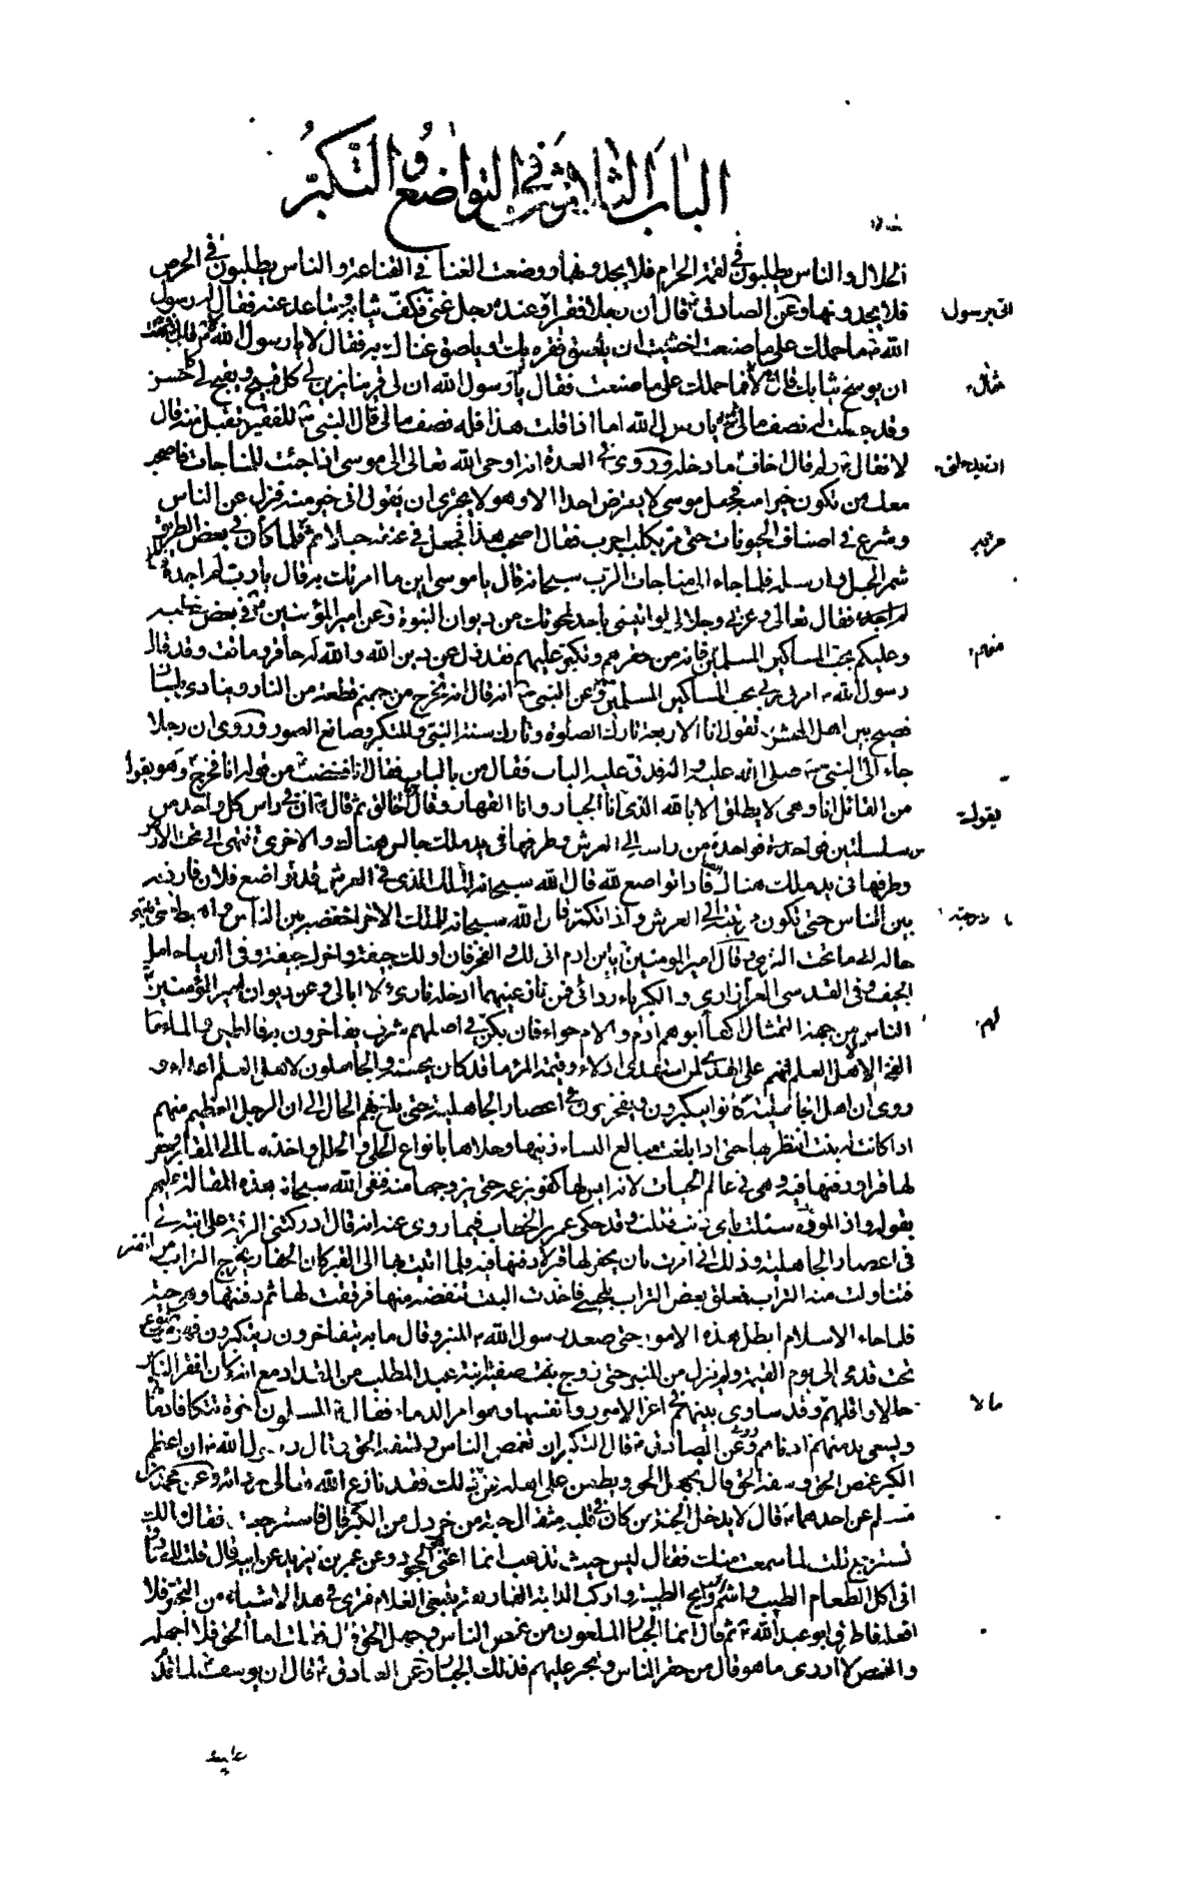 الباب الثلاثون في التواضع والتكبر
الحلال والناس يطلبون في لقمة الحرام فلا يجدونها ووضعت الغنا في القناعة والناس يطلبون في الحرص
فلا يجدونها وعن الصادق قال ان رجلا فقيرا وعنده رجل غني فكف ثيابه وتباعد عنه فقال له رسول
الله ما حملك على ما صنعت اخشيت ان يلصق فقره بك او يلصق غناك به فقال لا يا رسول الله
ان يوسخ ثيابك قال لا فما حملك على ما صنعت فقال يا رسول الله ان لي قرينا يزين لي كل قبيح ويقبح لي كل حسن
وقد جعلت له نصف مالي يا رسول الله اما اذا قلت هذا فله نصف مالي قال النبي للفقير تقبل منه قال
لا فقال له ولم قال اخاف ما دخله وروي في العدة انه اوحى الله تعالى الى موسى اذا جئت للمناجات فاصحب
معك من تكون خيرا منه فجعل موسى لا يعترض احدا الا وهو لا يجزى ان يقول اني خير منه فنزل عن الناس
وشرع في اصناف الحيوانات حتى مر بكلب اجرب فقال اصحب هذا فجعل في عنقه حبلا ثم فلما كان في بعض الطريق
شمر الحبل وارسله فلما جاء الى مناجات الرب سبحانه قال يا موسى اين ما امرتك به قال يا رب لم اجده
فقال تعالى وعزتي وجلالي لو اتيتني باحد لمحوتك من ديوان النبوة وعن امير المؤمنين في بعض خطبه
وعليكم بحب المساكين المسلمين فانه من حقرهم وتكبر عليهم فقد زل عن دين الله والله له حاقر وماقت وقد قال
رسول الله امرني ربي بحب المساكين المسلمين وعن النبي انه قال انه تخرج من جهنم قطعة من النار وينادي بلسان
فصيح بين اهل المحشر تقول انا الاربعة تارك الصلوة وتارك سنة النبي والمتكبر وصانع الصور وروي ان رجلا
جاء الى النبي صلى الله عليه وآله فدق عليه الباب فقال من بالباب فقال انا فغضب من قوله انا فخرج وهو يقول
من القائل انا وهي لا يطلق الا بالله الذي انا الجبار وانا القهار وقال خالق ثم قال ان في راس كل واحد من
سلسلتين فواحدة من راسه الى العرش وطرفها في يد ملك جالس هناك والاخرى تنتهي الى تحت الارض
وطرفها في يد ملك هناك فاذا تواضع لله قال الله سبحانه للملك الذي في العرش قد تواضع فلان فارفعه
بين الناس حتى تكون درجته الى العرش واذا تكبر قال الله سبحانه للملك الاخر اخفضه بين الناس
وقال امير المومنين يا بن ادم انى لك والفخر فان اولك جيفة واخرك جيفة وفي الدنيا حامل
الجيف وفي القدسي العظمة ازاري والكبرياء ردائي فمن نازعني فيهما ادخله ناري ولا ابالي وعن ديوان امير المؤمنين
الناس من جهة التمثال اكفاء ابوهم ادم والام حواء فان يكن في اصلهم شرف يفاخرون به فالطين والماء ما
الفخر الا لاهل العلم انهم على الهدى لمن استهدى ادلاء وقيمة المرء ما قد كان يحسنه والجاهلون لاهل العلم اعداء و
روي ان اهل الجاهلية كانوا يتكبرون ويفخرون في اعصار الجاهلية حتى بلغ بهم الحال الى ان الرجل العظيم منهم
اذا كانت له بنت انتظر بها حتى اذا بلغت مبالغ النساء زينها وحلاها بانواع الحلي والحلل واخذها الى المقابر وحفر
لها قبرا ودفنها فيه وهي في عالم الحيات لانه ليس لها كفو بزعمه حتى يزوجها منه فنفى الله سبحانه هذه المقالة عليهم
بقوله واذا الموؤدة سئلت باي ذنب قتلت وقد حكي عمر بن الخطاب فيما روي عنه انه قال ادركتني الرقة على ابنة لي
في اعصار الجاهلية وذلك اني امرت بان يحفر لها قبر لادفنها فيه فلما اتيت بها الى القبر كان الحفار يخرج التراب من
فتناولت منه التراب فعلق بعض التراب بلحيتي فاخذت البنت تنفضه منها فرققت لها ثم دفنتها وهي حية
فلما جاء الاسلام ابطل هذه الامور حتى صعد رسول الله المنبر وقال ما به يتفاخرون ويتكبرون فهو موضوع
تحت قدمي الى يوم القيمة ولم ينزل من المنبر حتى زوج بنت صفية ابنة عبد المطلب من المقداد مع انه كان افقر الناس
حالا واقلهم وقد ساوى بينهم في اعز الامور وانفسها وهو امر الدماء فقال المسلمون اخوة تتكافا دماؤهم
ويسعى بذمتهم ادناهم وعن الصادق قال التكبر ان تغمص الناس وتسفه الحق وقال رسول الله ان اعظم
الكبر غمص الحق وسفه الحق قال يجهل الحق ويطعن على اهله فمن فعل ذلك فقد نازع الله تعالى في ردائه وعن محمد بن
مسلم عن احدهما قال لا يدخل الجنة من كان في قلبه مثقال حبة من خردل من الكبر قال فاسترجعت فقال مالك
تسترجع قلت لما سمعت منك فقال ليس حيث تذهب انما اعني الجحود وعن عمر بن يزيد عن ابيه قال قلت
اني اكل الطعام الطيب واشم الروايح الطيبة واركب الدابة الفارهة ويتبعني الغلام فترى في هذا الاشياء من التجبر فلا
افعله فاطرق ابو عبد الله ثم قال انما الجبار الملعون من غمص الناس وجهل الحق قال فقلت اما الحق فلا اجهله
والغمص لا ادري ما هو قال من حقر الناس وتجبر عليهم فذلك الجبار وعن الصادق قال ان يوسف لما قدم
اتى برسول
يقول
درجته
لهم
مالا
عليه